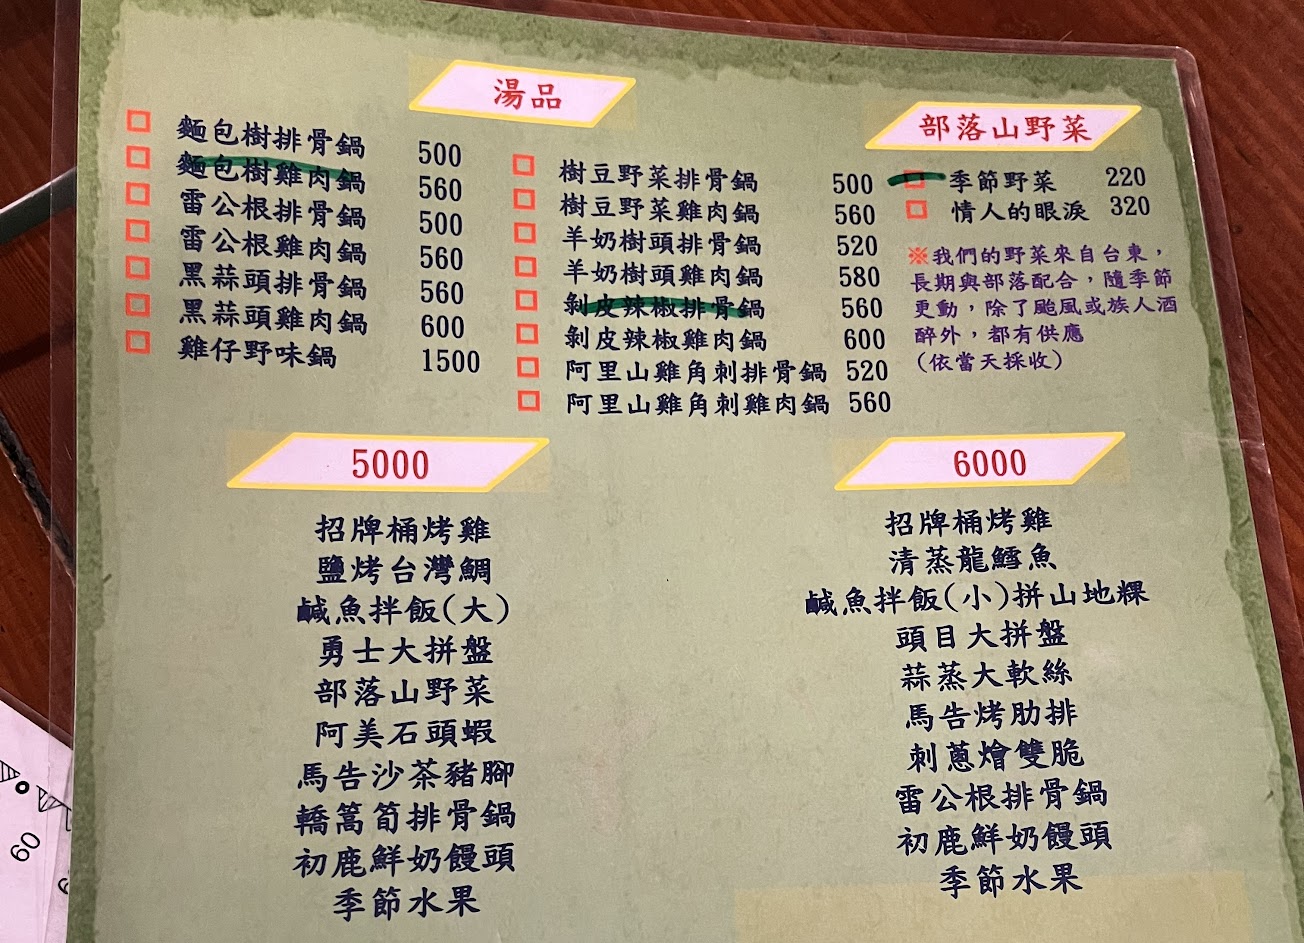 湯品
□ 麵包樹排骨鍋 500
□ 麵包樹雞肉鍋 560
□ 雷公根排骨鍋 500
□ 雷公根雞肉鍋 560
□ 黑蒜頭排骨鍋 560
□ 黑蒜頭雞肉鍋 600
□ 雞仔野味鍋 1500
□ 樹豆野菜排骨鍋 500
□ 樹豆野菜雞肉鍋 560
□ 羊奶樹頭排骨鍋 520
□ 羊奶樹頭雞肉鍋 580
□ 剝皮辣椒排骨鍋 560
□ 剝皮辣椒雞肉鍋 600
□ 阿里山雞角刺排骨鍋 520
□ 阿里山雞角刺雞肉鍋 560
部落山野菜
□ 季節野菜 220
□ 情人的眼淚 320
※我們的野菜來自台東，
長期與部落配合，隨季節
更動，除了颱風或族人酒
醉外，都有供應
(依當天採收)
5000
招牌桶烤雞
鹽烤台灣鯛
鹹魚拌飯(大)
勇士大拼盤
部落山野菜
阿美石頭蝦
馬告沙茶豬腳
轎篙筍排骨鍋
初鹿鮮奶饅頭
季節水果
6000
招牌桶烤雞
清蒸龍鱈魚
鹹魚拌飯(小)拼山地粿
頭目大拼盤
蒜蒸大軟絲
馬告烤肋排
刺蔥燴雙脆
雷公根排骨鍋
初鹿鮮奶饅頭
季節水果
60